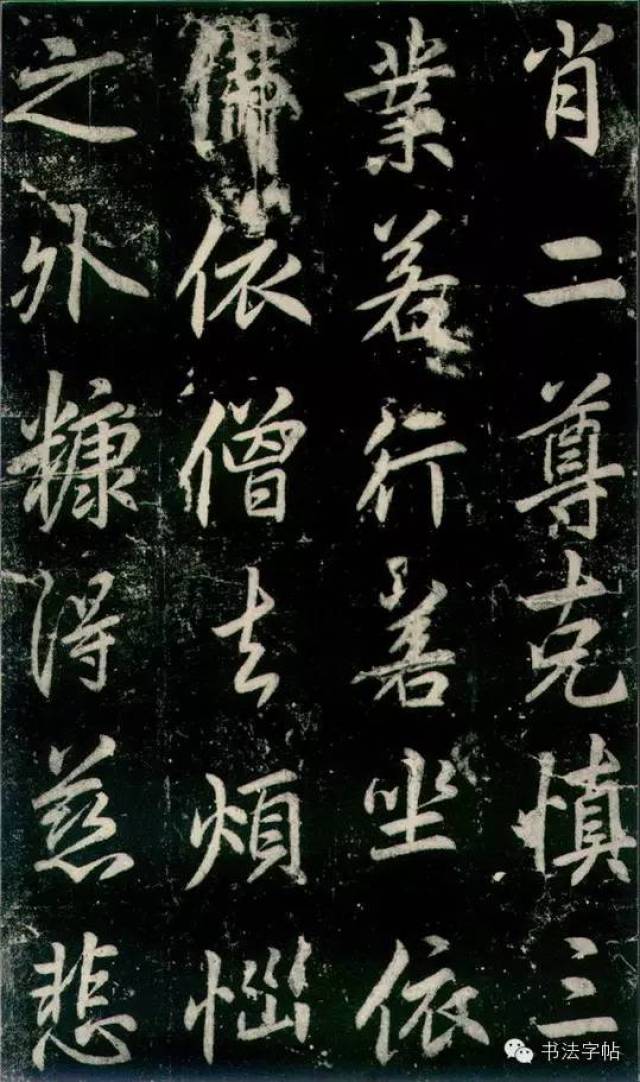 肖二尊克慎三
業若行善坐依
佛依僧去煩惱
之外糠得慈悲
书法字帖